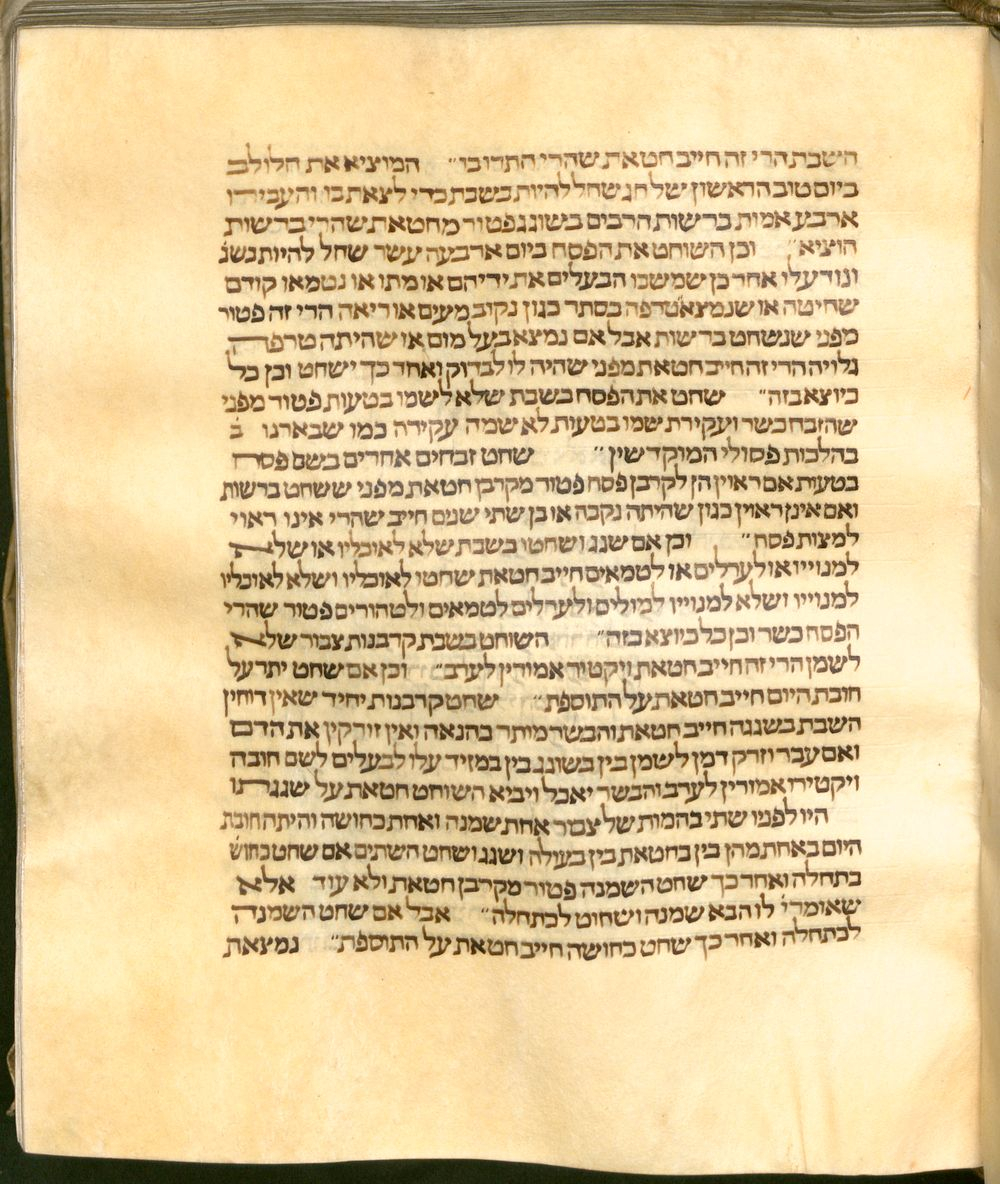 השבת הרי זה חייב חטאת שהרי התרו בו״ המוציא את הלולב
ביום טוב הראשון של חג שחל להיות בשבת כדי לצאת בו והעבירו
ארבע אמות ברשות הרבים בשוגג פטור מחטאת שהרי ברשות
הוציא״ וכן השוחט את הפסח ביום ארבעה עשר שחל להיות בשׁ
ונודע לו אחר כן שמשכו הבעלים את ידיהם או מתו או נטמאו קודם
שחיטה או שנמצא טרפה בסתר כגון נקוב מעים או ריאה הרי זה פטור
מפני שנשחט ברשות אבל אם נמצא בעל מום או שהיתה טרפה
גלויה הרי זה חייב חטאת מפני שהיה לו לבדוק ואחר כך ישחט וכן כל
כיוצא בזה״ שחט את הפסח בשבת שלא לשמו בטעות פטור מפני
שהזבח כשר ועקירת שמו בטעות לא שמה עקירה כמו שבארנו ב
בהלכות פסולי המוקדשין״ שחט זבחים אחרים בשם פסח
בטעות אם ראוין הן לקרבן פסח פטור מקרבן חטאת מפני ששחט ברשות
ואם אינן ראוין כגון שהיתה נקבה או בן שתי שנים חייב שהרי אינו ראוי
למצות פסח״ וכן אם שגג ושחטו בשבת שלא לאוכליו או שלא
למנוייו או לערלים או לטמאים חייב חטאת שחטו לאוכליו ושלא לאוכליו
למנוייו ושלא למנוייו למולים ולערלים לטמאים ולטהורים פטור שהרי
הפסח כשר וכן כל כיוצא בזה״ השוחט בשבת קרבנות צבור שלא
לשמן הרי זה חייב חטאת ויקטיר אמורין לערב״ וכן אם שחט יתר על
חובת היום חייב חטאת על התוספת״ שחט קרבנות יחיד שאין דוחין
השבת בשגגה חייב חטאת והבשר מותר בהנאה ואין זורקין את הדם
ואם עבר וזרק דמן לשמן בין בשוגג בין במזיד עלו לבעלים לשם חובה
ויקטירו אמורין לערב והבשר יאכל ויביא השוחט חטאת על שגגתו
היו לפניו שתי בהמות של צבור אחת שמנה ואחת כחושה והיתה חובת
היום באחת מהן בין בחטאת בין בעולה ושגג ושחט השתים אם שחט כחושׁ
בתחלה ואחר כך שחט השמנה פטור מקרבן חטאת ולא עוד אלא
שאומרי׳ לו הבא שמנה ושחוט לכתחלה״ אבל אם שחט השמנה
לכתחלה ואחר כך שחט כחושה חייב חטאת על התוספת״ נמצאת